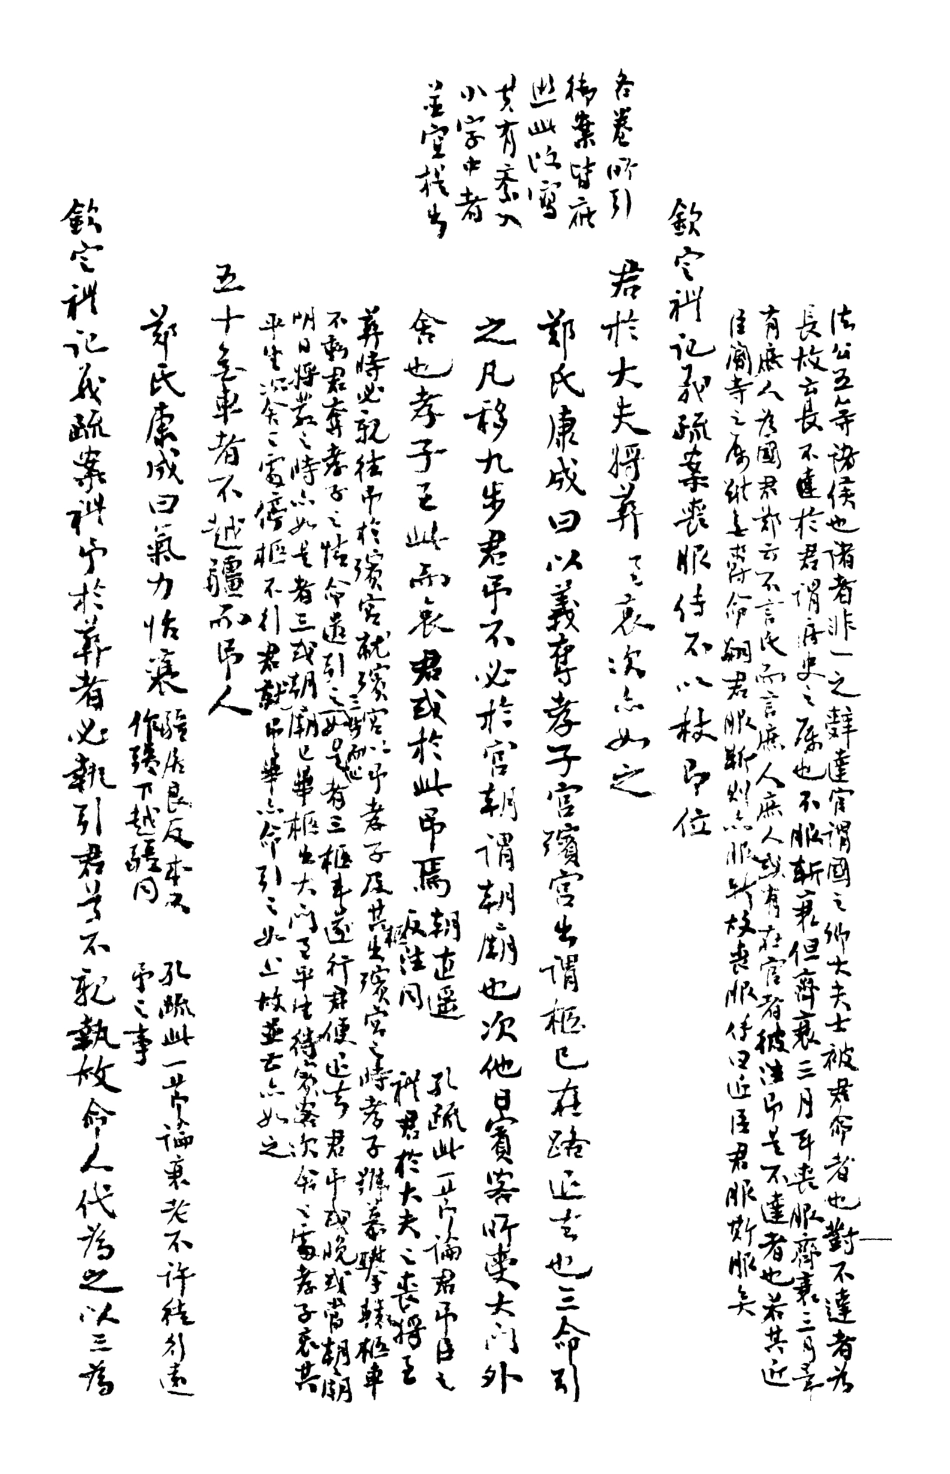 法公五等諸侯也諸者非一之辭達官謂國之卿大夫士被君命者也對不達者為
長故云長不達於君謂府史之屬也不服斬衰但齊衰三月耳喪服齊衰三月章
有庶人為國君鄭云不言民而言庶人庶人或有在官者彼注即是不達者也若其近
臣閽寺之屬雖無爵命嗣君服斯則亦服斬故喪服傳曰近臣君服斯服矣
欽定禮記義疏案喪服傳不以杖即位
各卷所引
御案皆應
照此改寫
其有系入
小字中者
並宜提出
君於大夫將葬至哀次亦如之
鄭氏康成曰以義奪孝子宮殯宮出謂柩已在路退去也三命引
之凡移九步君弔不必於宮朝謂朝廟也次他日賓客所受大門外
舍也孝子至此而哀君或於此弔焉
朝直遥
反注同
孔疏此一節論君弔臣之
禮君於大夫之喪將至
葬時必親往弔於殯宮就殯宮以弔孝子及其出殯宮之時孝子雖慕攀轅柩車
不動君奪孝子之情命遣引之如是者三柩車遂行君便退去君弔或晚或當朝廟
明日將葬之時亦如是者三或朝廟已畢柩出大門至平生待賓客次舍之處孝子哀其
平生次舍之處停柩不引君就弔畢亦命引之如上故並云亦如之
五十無車者不越疆而弔人
鄭氏康成曰氣力始衰
疆居良反本又
作壃下越疆同
孔疏此一節論衰老不許徒行遠
弔之事
欽定禮記義疏案禮弔於葬者必執引君尊不親執故命人代為之以三為